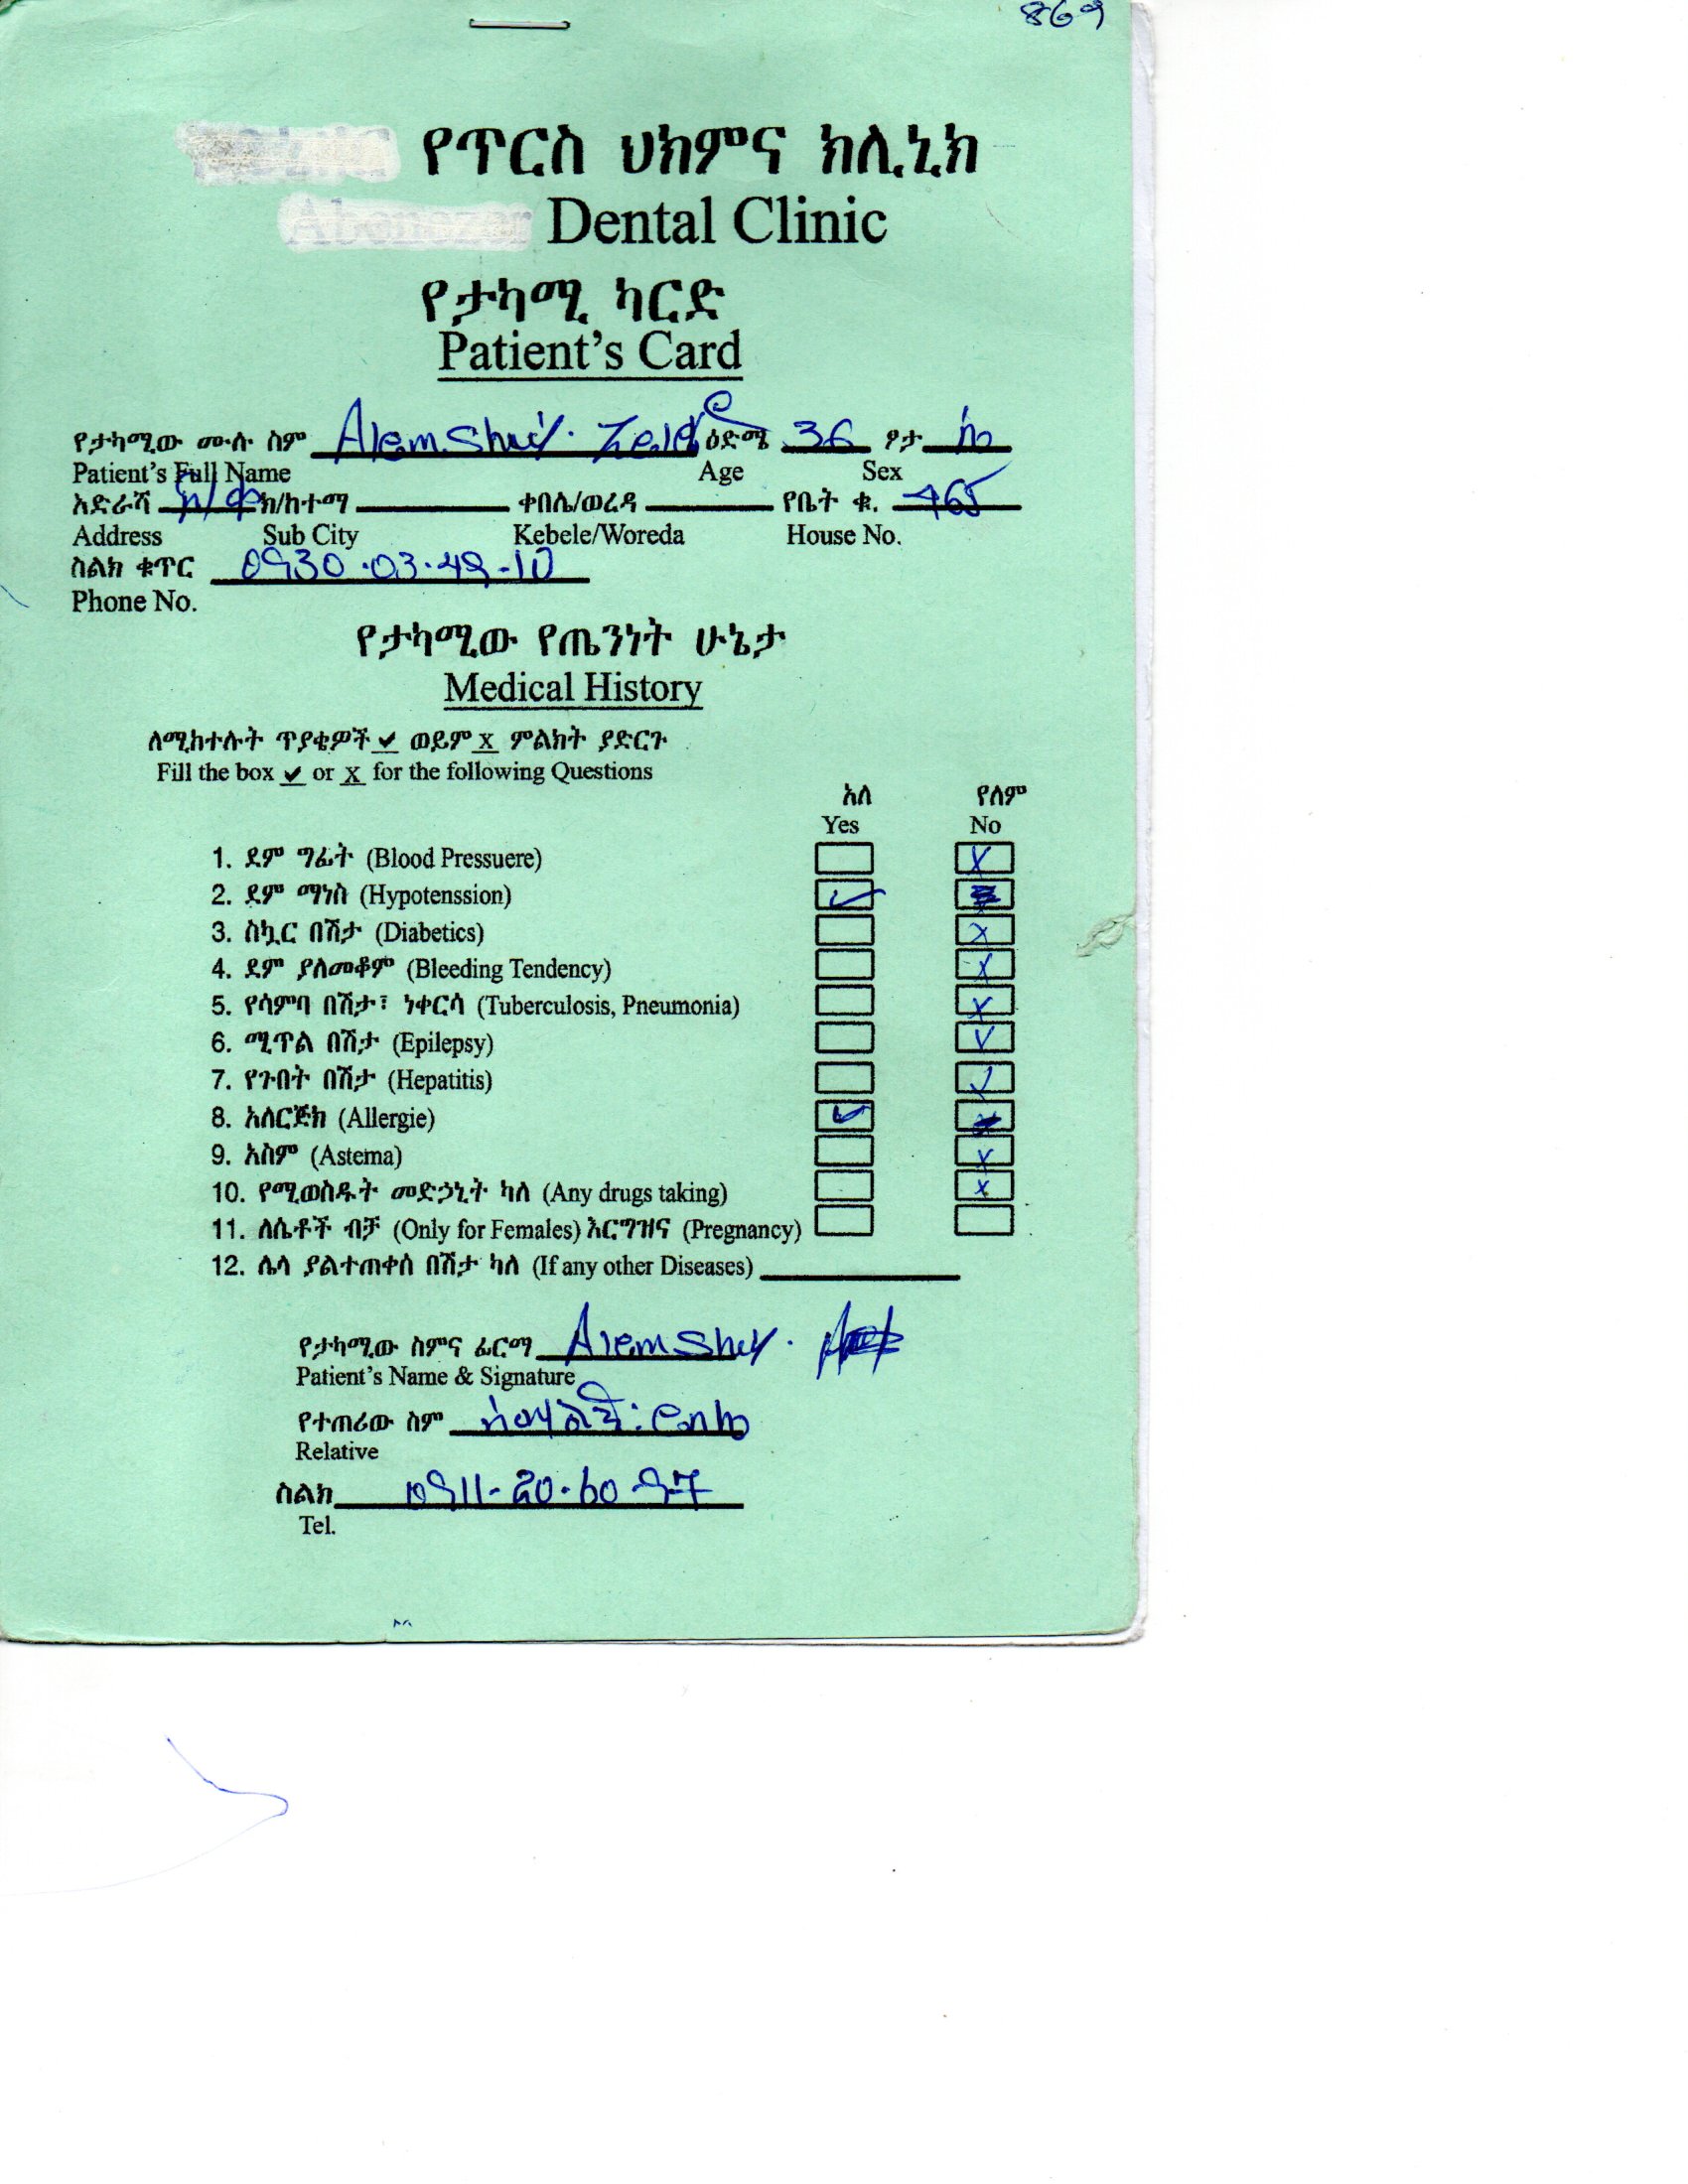 869
የጥርስ ህክምና ክሊኒክ
Dental Clinic
የታካሚ ካርድ
Patient's Card
የታካሚው ሙሉ ስም Alemshet ዕድሜ 36 ፆታ
Patient's Full Name Age Sex
አድራሻ ክ/ከተማ ቀበሌ/ወረዳ የቤት ቁ. 465
Address Sub City Kebele/Woreda House No.
ስልክ ቁጥር 0930.03.49-10
Phone No.
የታካሚው የጤንነት ሁኔታ
Medical History
ለሚከተሉት ጥያቄዎች ✔ ወይም X ምልክት ያድርጉ
Fill the box ✔ or X for the following Questions
አለ የለም
Yes No
1. ደም ግፊት (Blood Pressuere) X
2. ደም ማነስ (Hypotenssion) ✓
3. ስኳር በሽታ (Diabetics) X
4. ደም ያለመቆም (Bleeding Tendency) X
5. የሳምባ በሽታ፣ ነቀርሳ (Tuberculosis, Pneumonia) X
6. ሚጥል በሽታ (Epilepsy) ✓
7. የጉበት በሽታ (Hepatitis) ✓
8. አለርጅክ (Allergie) ✓
9. አስም (Astema) X
10. የሚወስዱት መድኃኒት ካለ (Any drugs taking) X
11. ለሴቶች ብቻ (Only for Females) እርግዝና (Pregnancy)
12. ሌላ ያልተጠቀሰ በሽታ ካለ (If any other Diseases)
የታካሚው ስምና ፊርማ Alemshet
Patient's Name & Signature
የተጠሪው ስም
Relative
ስልክ 0911-20-60-97
Tel.